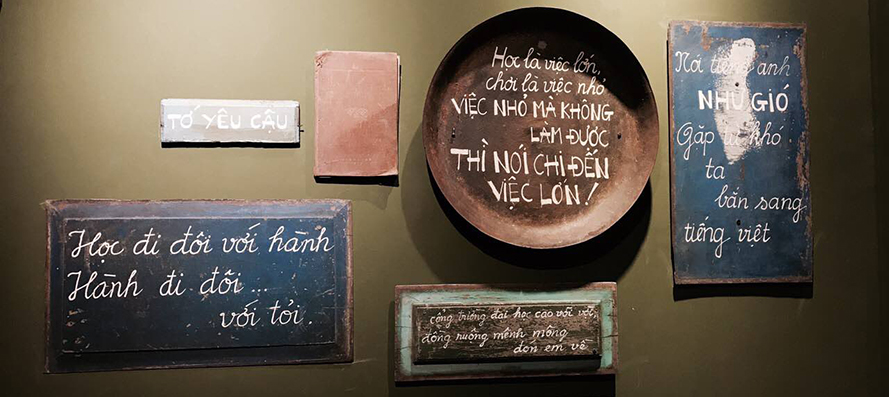 TỚ YÊU CẬU
Học là việc lớn,
chơi là việc nhỏ
VIỆC NHỎ MÀ KHÔNG
LÀM ĐƯỢC
THÌ NÓI CHI ĐẾN
VIỆC LỚN!
Nói tiếng anh
NHƯ GIÓ
Gặp từ khó
ta
bắn sang
tiếng việt
Học đi đôi với hành
Hành đi đôi...
với tỏi.
cổng trường đại học cao vời vợi,
đồng ruộng mênh mông
đón em về